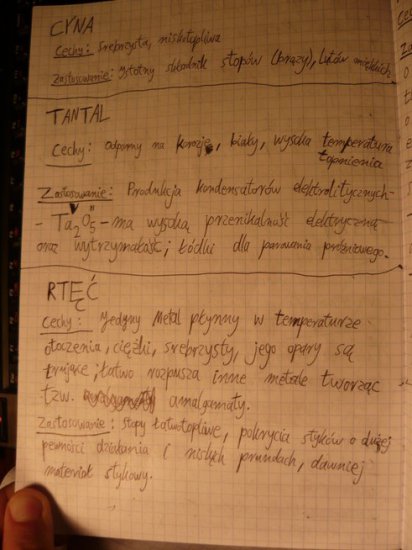 CYNA
Cechy: srebrzysta, niskotopliwa
Zastosowanie: Istotny składnik stopów (brązy), lutów miękkich.
TANTAL
Cechy: odporny na korozje, biały, wysoka temperatura
topnienia
Zastosowanie: Produkcja kondensatorów elektrolitycznych-
- Ta₂O₅ - ma wysoką przenikalność elektryczną
V II
oraz wytrzymałość; Łódki dla parowania próżniowego.
RTĘĆ
Cechy: Jedyny Metal płynny w temperaturze
otoczenia, ciężki, srebrzysty, jego opary są
trujące; łatwo rozpusza inne metale tworząc
tzw. amalgamaty.
Zastosowanie: stopy łatwotopliwe, pokrycia styków o dużej
pewności działania i niskich prundach, dawniej
materiał stykowy.